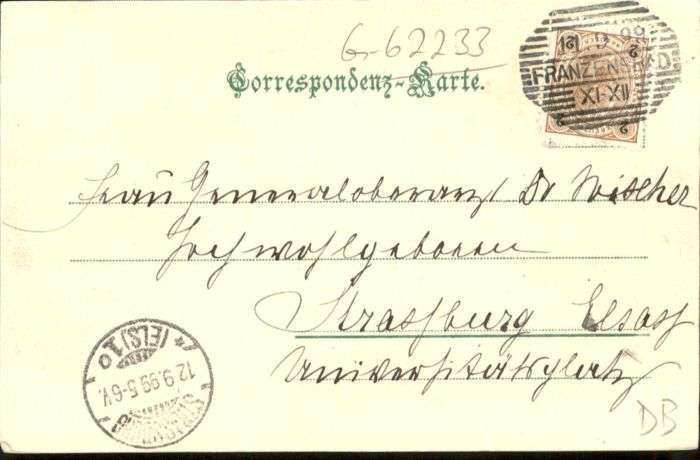 G-62233
Correspondenz-Karte.
FRANZENSBAD
XI-XII
2 2
2 2
Frau Generaloberarzt Dr Wischer
Hochwohlgeboren
Strassburg Elsass
Universitätsplatz
(ELS) 1 o
12.9.99.5-6V.
DB